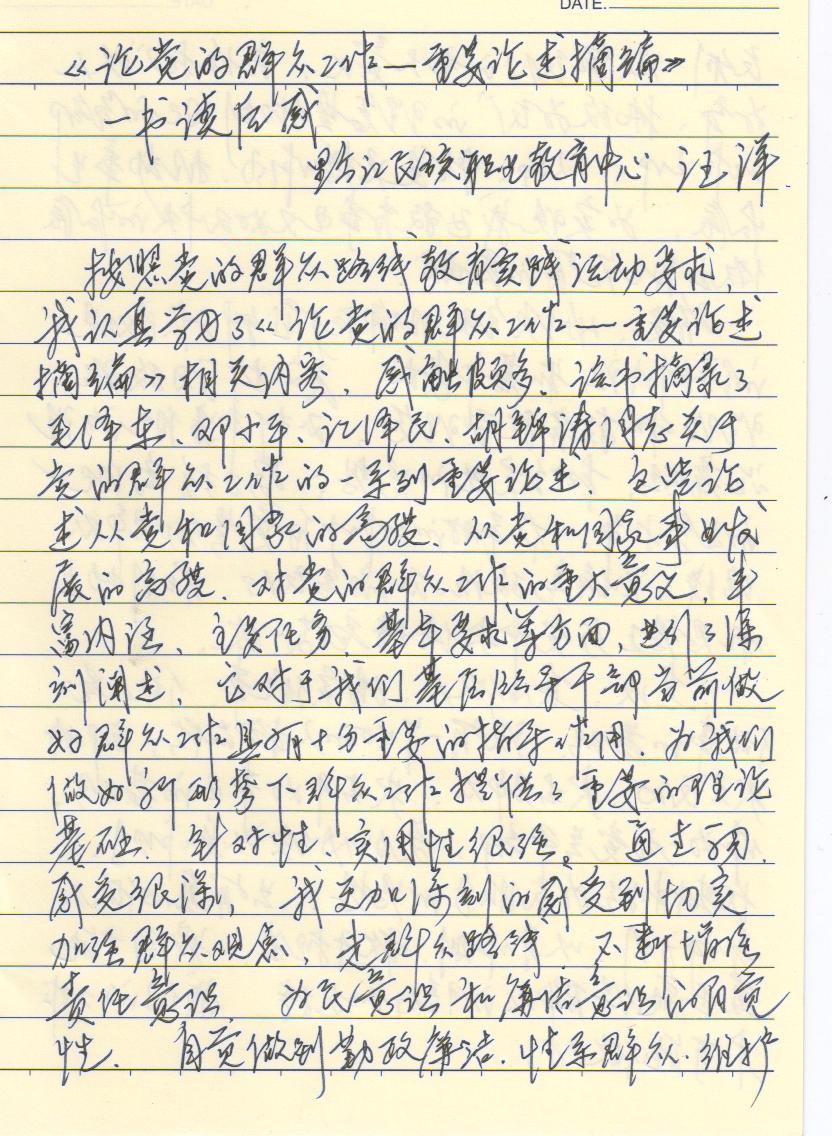 DATE.
《论党的群众工作——重要论述摘编》
一书读后感
黔江区民族职业教育中心 汪洋
按照党的群众路线教育实践活动要求,
我认真学习了《论党的群众工作——重要论述
摘编》相关内容,感触颇多。该书摘录了
毛泽东、邓小平、江泽民、胡锦涛同志关于
党的群众工作的一系列重要论述。这些论
述从党和国家的高度、从党和国家事业发
展的高度,对党的群众工作的重大意义,丰
富内涵、主要任务、基本要求等方面,进行了深
刻阐述,它对于我们基层领导干部当前做
好群众工作具有十分重要的指导作用,为我们
做好新形势下群众工作提供了重要的理论
基础,针对性、实用性很强。通过学习,
感受很深,我更加深刻的感受到切实
加强群众观念,走群众路线,不断增强
责任意识、为民意识和廉洁意识的
性,做到勤政廉洁,情系群众,维护